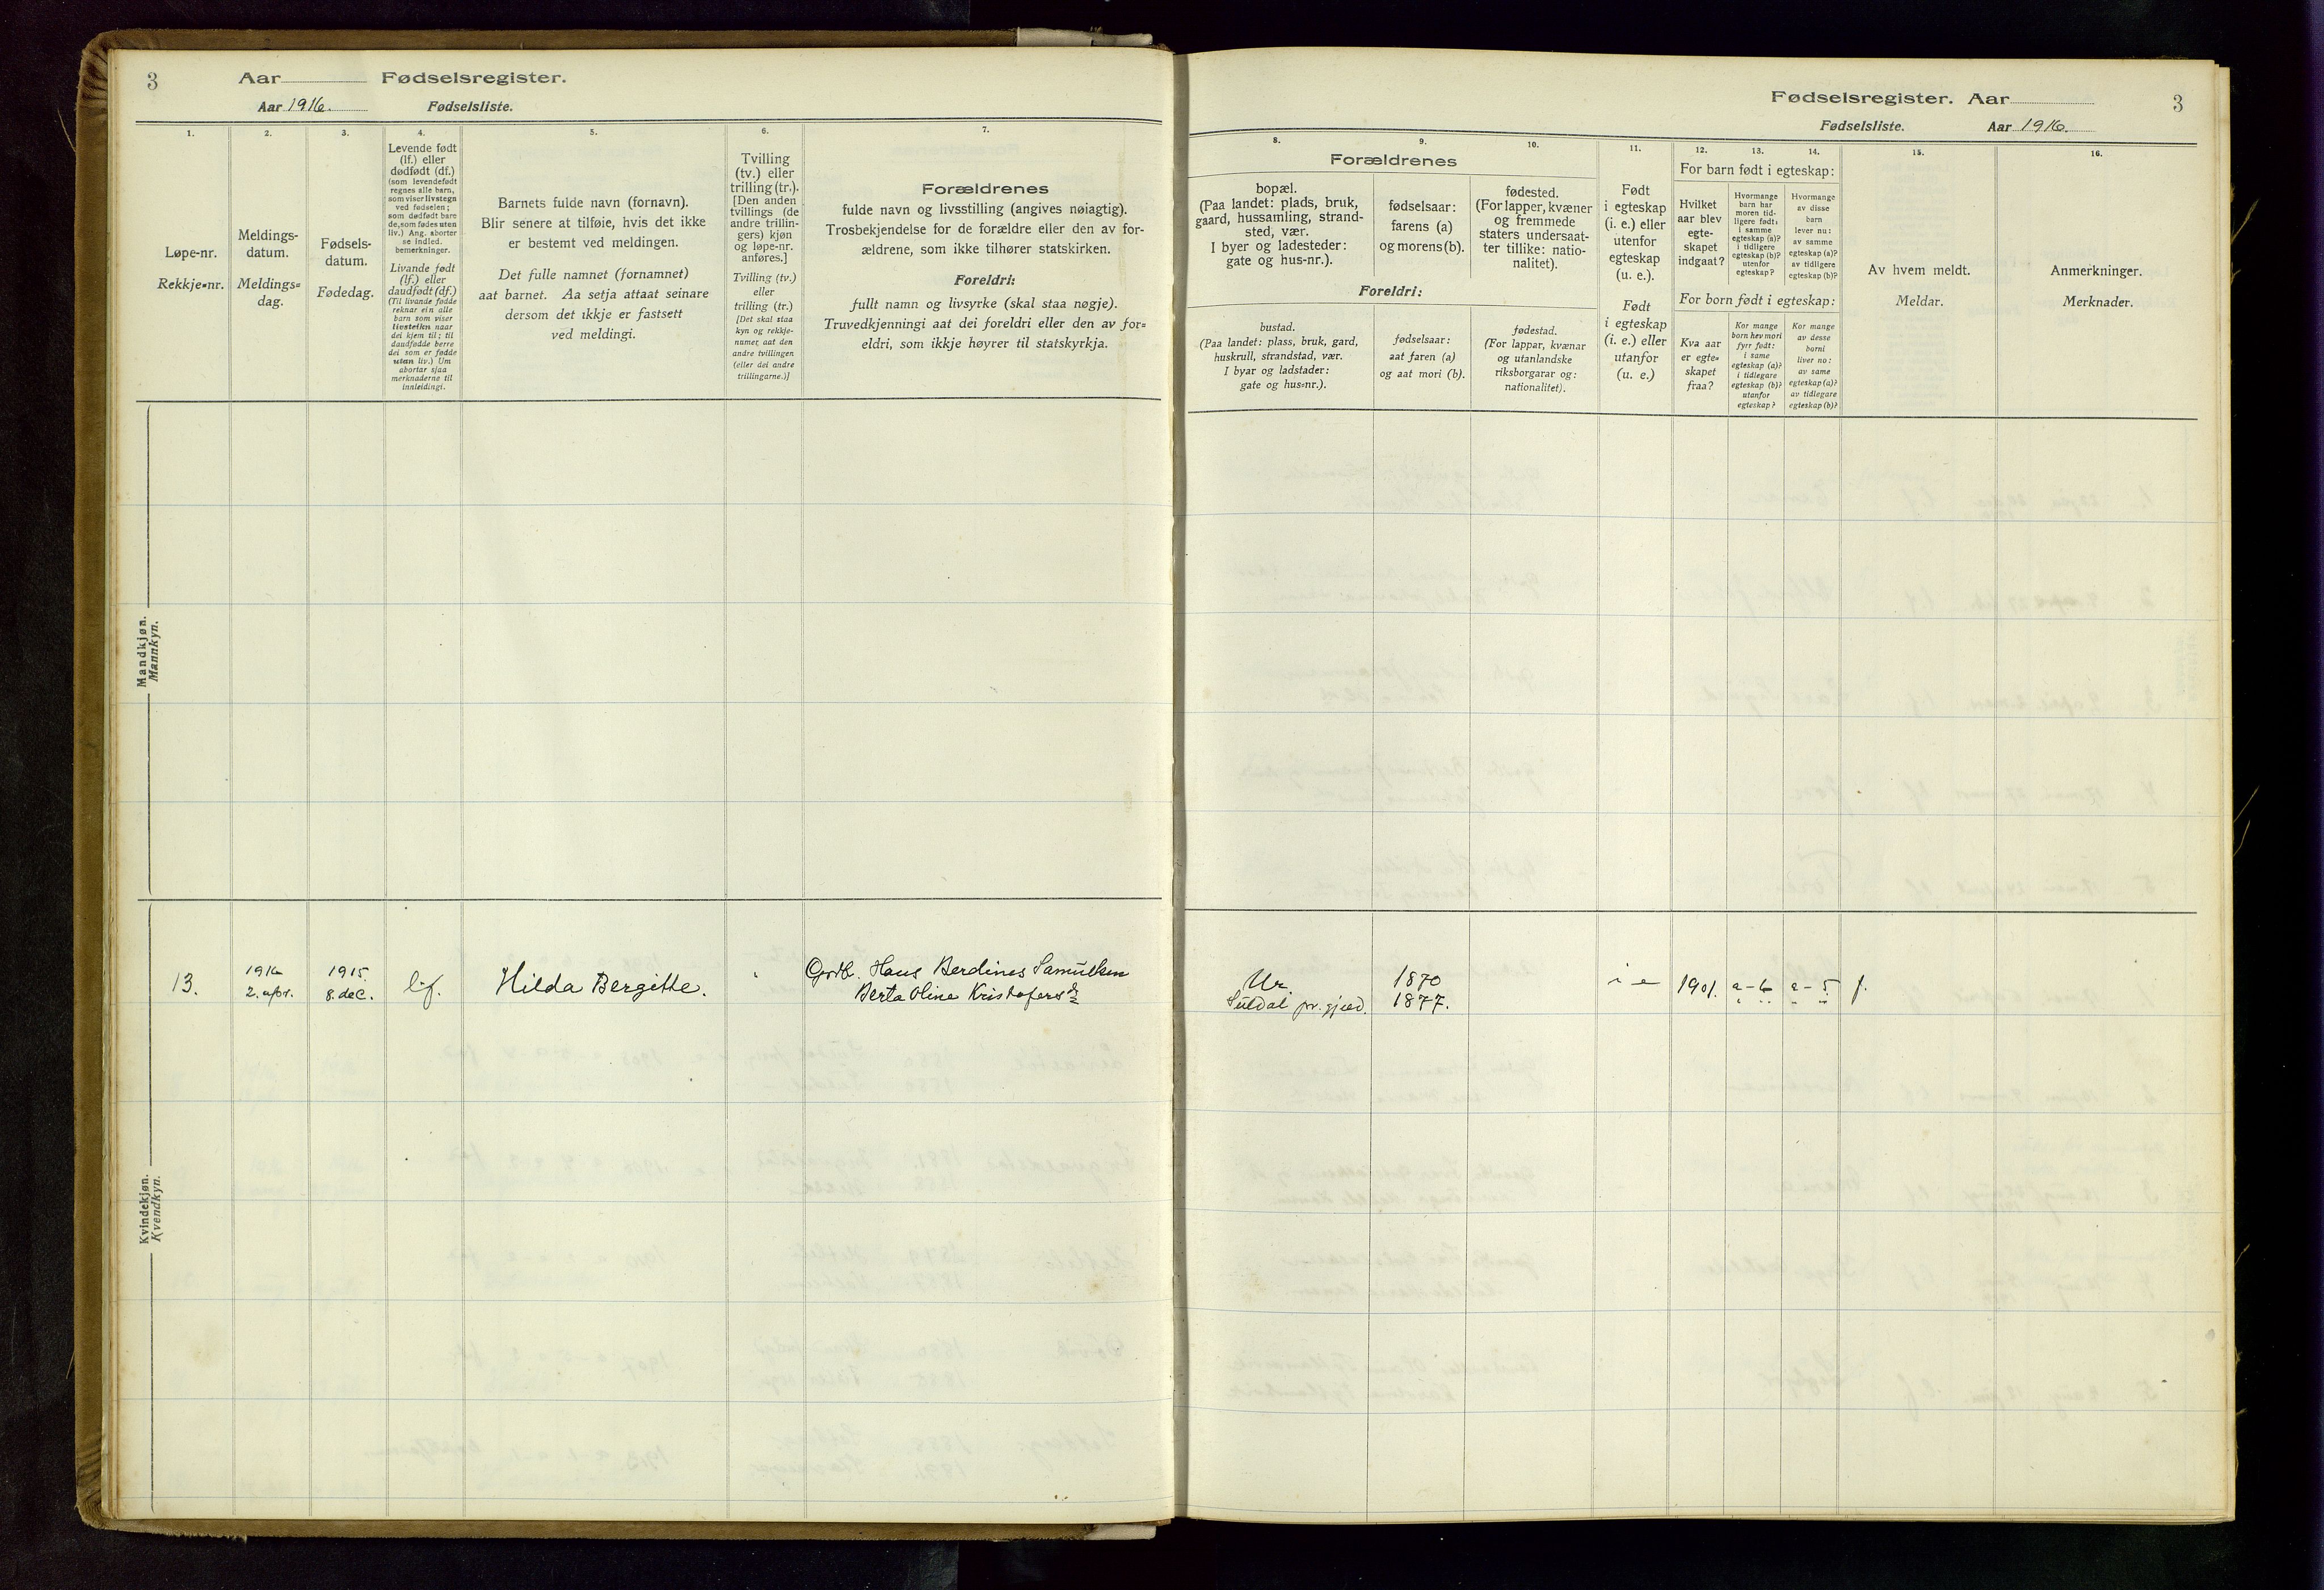 3
Aar Fødselsregister.
Aar 1916. Fødselsliste.
1.
Løpe-nr.
Rekkje-nr.
2.
Meldings-
datum.
Meldings-
dag.
3.
Fødsels-
datum.
Fødedag.
4.
Levende født
(lf.) eller
dødfødt (df.)
(som levendefødt
regnes alle barn,
som viser livstegn
ved fødselen;
som dødfødt bare
de, som fødes uten
liv.) Ang. aborter
se indled.
bemerkninger.
Livande født
(lf.) eller
daudfødt (df.)
(Til livande fødde
reknar ein alle
barn som viser
livsteikn naar
dei kjem til; til
daudfødde berre
dei som er fødde
utan liv.) Um
abortar sjaa
merknaderne til
innleidingi.
5.
Barnets fulde navn (fornavn).
Blir senere at tilføie, hvis det ikke
er bestemt ved meldingen.
Det fulle namnet (fornamnet)
aat barnet. Aa setja attaat seinare
dersom det ikkje er fastsett
ved meldingi.
6.
Tvilling
(tv.) eller
trilling (tr.).
[Den anden
tvillings (de
andre trillin-
gers) kjøn
og løpe-nr.
anføres.]
Tvilling (tv.)
eller
trilling (tr.)
[Det skal staa
kyn og rekkje-
numer, aat den
andre tvillingen
(eller dei andre
trillingarne.)]
7.
Forældrenes
fulde navn og livsstilling (angives nøiagtig).
Trosbekjendelse for de forældre eller den av for-
ældrene, som ikke tilhører statskirken.
Foreldri:
fullt namn og livsyrke (skal staa nøgje).
Truvedkjenningi aat dei foreldri eller den av for-
eldri, som ikkje høyrer til statskyrkja.
Mandkjøn.
Mannkyn.
13.
1916
2. apr.
1915
8. dec.
l.f.
Hilda Bergitte.
Gprdb. Hans Berdines Samuelsen
Berta Oline Kristofersd.
Kvindekjøn.
Kvendkyn.
Fødselsregister. Aar
3
Fødselsliste. Aar 1916.
8.
9.
10.
Forældrenes
bopæl.
(Paa landet: plads, bruk,
gaard, hussamling, strand-
sted, vær.
I byer og ladesteder:
gate og hus-nr.).
fødselsaar:
farens (a)
og morens (b).
fødested.
(For lapper, kvæner
og fremmede
staters undersaat-
ter tillike: natio-
nalitet).
Foreldri:
bustad.
(Paa landet: plass, bruk, gard,
huskrull, strandstad, vær.
I byar og ladstader:
gate og hus-nr.).
fødselsaar:
aat faren (a)
og aat mori (b).
fødestad.
(For lappar, kvænar
og utanlandske
riksborgarar og:
nationalitet).
11.
Født
i egteskap
(i. e.) eller
utenfor
egteskap
(u. e.).
Født
i egteskap
(i. e.) eller
utanfor
(u. e.)
12.
13.
14.
For barn født i egteskap:
Hvilket
aar blev
egte-
skapet
indgaat?
Hvormange
barn har
moren tid-
ligere født:
i samme
egteskap (a)?
i tidligere
egteskap (b)?
utenfor
egteskap?
Hvormange
av disse
barn
lever nu:
av samme
egteskap (a)?
av tidligere
egteskap (b)?
For born født i egteskap:
Kva aar
er egte-
skapet
fraa?
Kor mange
born hev mori
fyrr født:
i same
egteskap (a)?
i tidlegare
egteskap (b)?
utanfor
egteskap?
Kor mange
av desse
borni
liver no:
av same
egteskap (a)?
av tidlegare
egteskap (b)?
15.
Av hvem meldt.
Meldar.
16.
Anmerkninger.
Merknader.
Ur.
Suldal pr. gjeld.
1870
1877.
i e
1901.
a - 6
a - 5.
f.